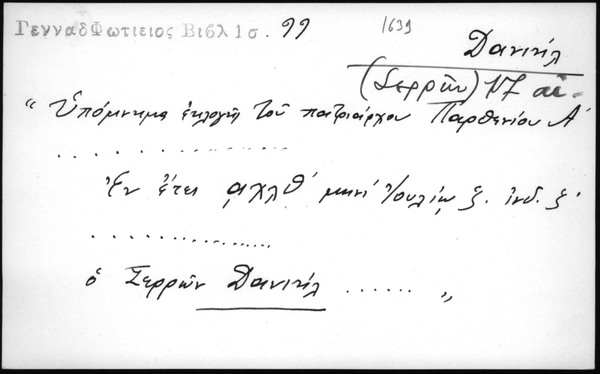 ΓενναδΦωτιειος Βιβλ 1σ. 99 1639
Δανιήλ
(Σερρῶν) 17 αἰ-
“Ὑπόμνημα ἐκλογῆς τοῦ πατριάρχου Παρθενίου Α'
. . . . . . . . . . . . . . . . .
Ἐν ἔτει αχλθ' μηνί Ἰουλίῳ ξ. ἰνδ. ξ.
. . . . . . . . . . . . . . . . .
ὁ Σερρῶν Δανιήλ ...... „